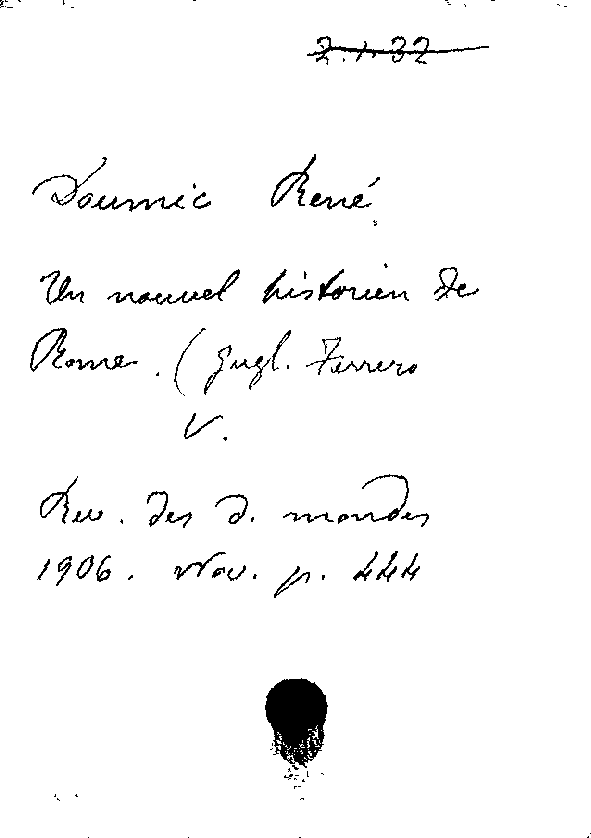 2.1.32
Doumic René
Un nouvel historien de
Rome. (Gugl. Ferrero
V.
Rev. des d. mondes
1906. Nov. p. 444